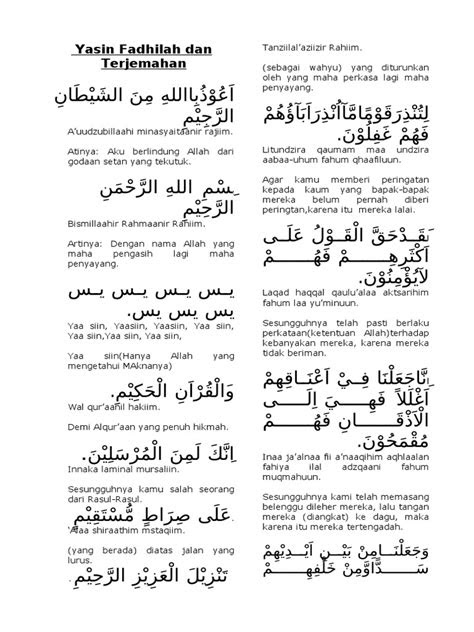 Yasin Fadhilah dan
Terjemahan
اَعُوْذُبِااللهِ مِنَ الشَّيْطَانِ
الرَّجِيْمِ
A'uudzubillaahi minasyaitaanir rajiim.
Atinya: Aku berlindung Allah dari
godaan setan yang tekutuk.
بِسْمِ اللهِ الرَّحْمَنِ
الرَّحِيْمِ
Bismillaahir Rahmaanir Rahiim.
Artinya: Dengan nama Allah yang
maha pengasih lagi maha
penyayang.
يــس يــس يــس يــس
يس يس يس.
Yaa siin, Yaasiin, Yaasiin, Yaa siin,
Yaa siin,Yaa siin, Yaa siin,
Yaa siin(Hanya Allah yang
mengetahui MAknanya)
وَالْقُرْاَنِ الْحَكِيْمِ.
Wal qur'aanil hakiim.
Demi Alqur'aan yang penuh hikmah.
اِنَّكَ لَمِنَ الْمُرْسَلِيْنَ.
Innaka laminal mursaliin.
Sesungguhnya kamu salah seorang
dari Rasul-Rasul.
عَلَى صِرَاطٍ مُّسْتَقِيْمٍ.
'Alaa shiraathim mstaqiim.
(yang berada) diatas jalan yang
lurus.
تَنْزِيْلَ الْعَزِيْزِ الرَّحِيْمِ.
Tanziilal'aziizir Rahiim.
(sebagai wahyu) yang diturunkan
oleh yang maha perkasa lagi maha
penyayang.
لِتُنْذِرَقَوْمًامَّآاُنْذِرَاَبَآؤُهُمْ
فَهُمْ غَفِلُوْنَ.
Litundzira qaumam maa undzira
aabaa-uhum fahum qhaafiluun.
Agar kamu memberi peringatan
kepada kaum yang bapak-bapak
mereka belum pernah diberi
peringtan,karena itu mereka lalai.
لَقَدْحَقَّ الْقَوْلُ عَلَــى
اَكْثَرِهِــــمْ فَهُــــمْ
لاَيُؤْمِنُوْنَ.
Laqad haqqal qaulu'alaa aktsarihim
fahum laa yu'minuun.
Sesungguhnya telah pasti berlaku
perkataan(ketentuan Allah)terhadap
kebanyakan mereka, karena mereka
tidak beriman.
اِنَّاجَعَلْنَا فِــيْ اَعْنَــاقِهِمْ
اَغْلَلاً فَهِــــيَ اِلَــــى
الْاَذْقَــــانِ فَهُــــمْ
مُقْمَحُوْنَ.
Inaa ja'alnaa fii a'naaqihim aqhlaalan
fahiya ilal adzqaani fahum
muqmahuun.
Sesungguhnya kami telah memasang
belenggu dileher mereka, lalu tangan
mereka (diangkat) ke dagu, maka
karena itu mereka tertengadah.
وَجَعَلْنَــامِنْ بَيْــنِ اَيْــدِيْهِمْ
سَــــدًّاوَّمِنْ خَلْفِهِــــمْ